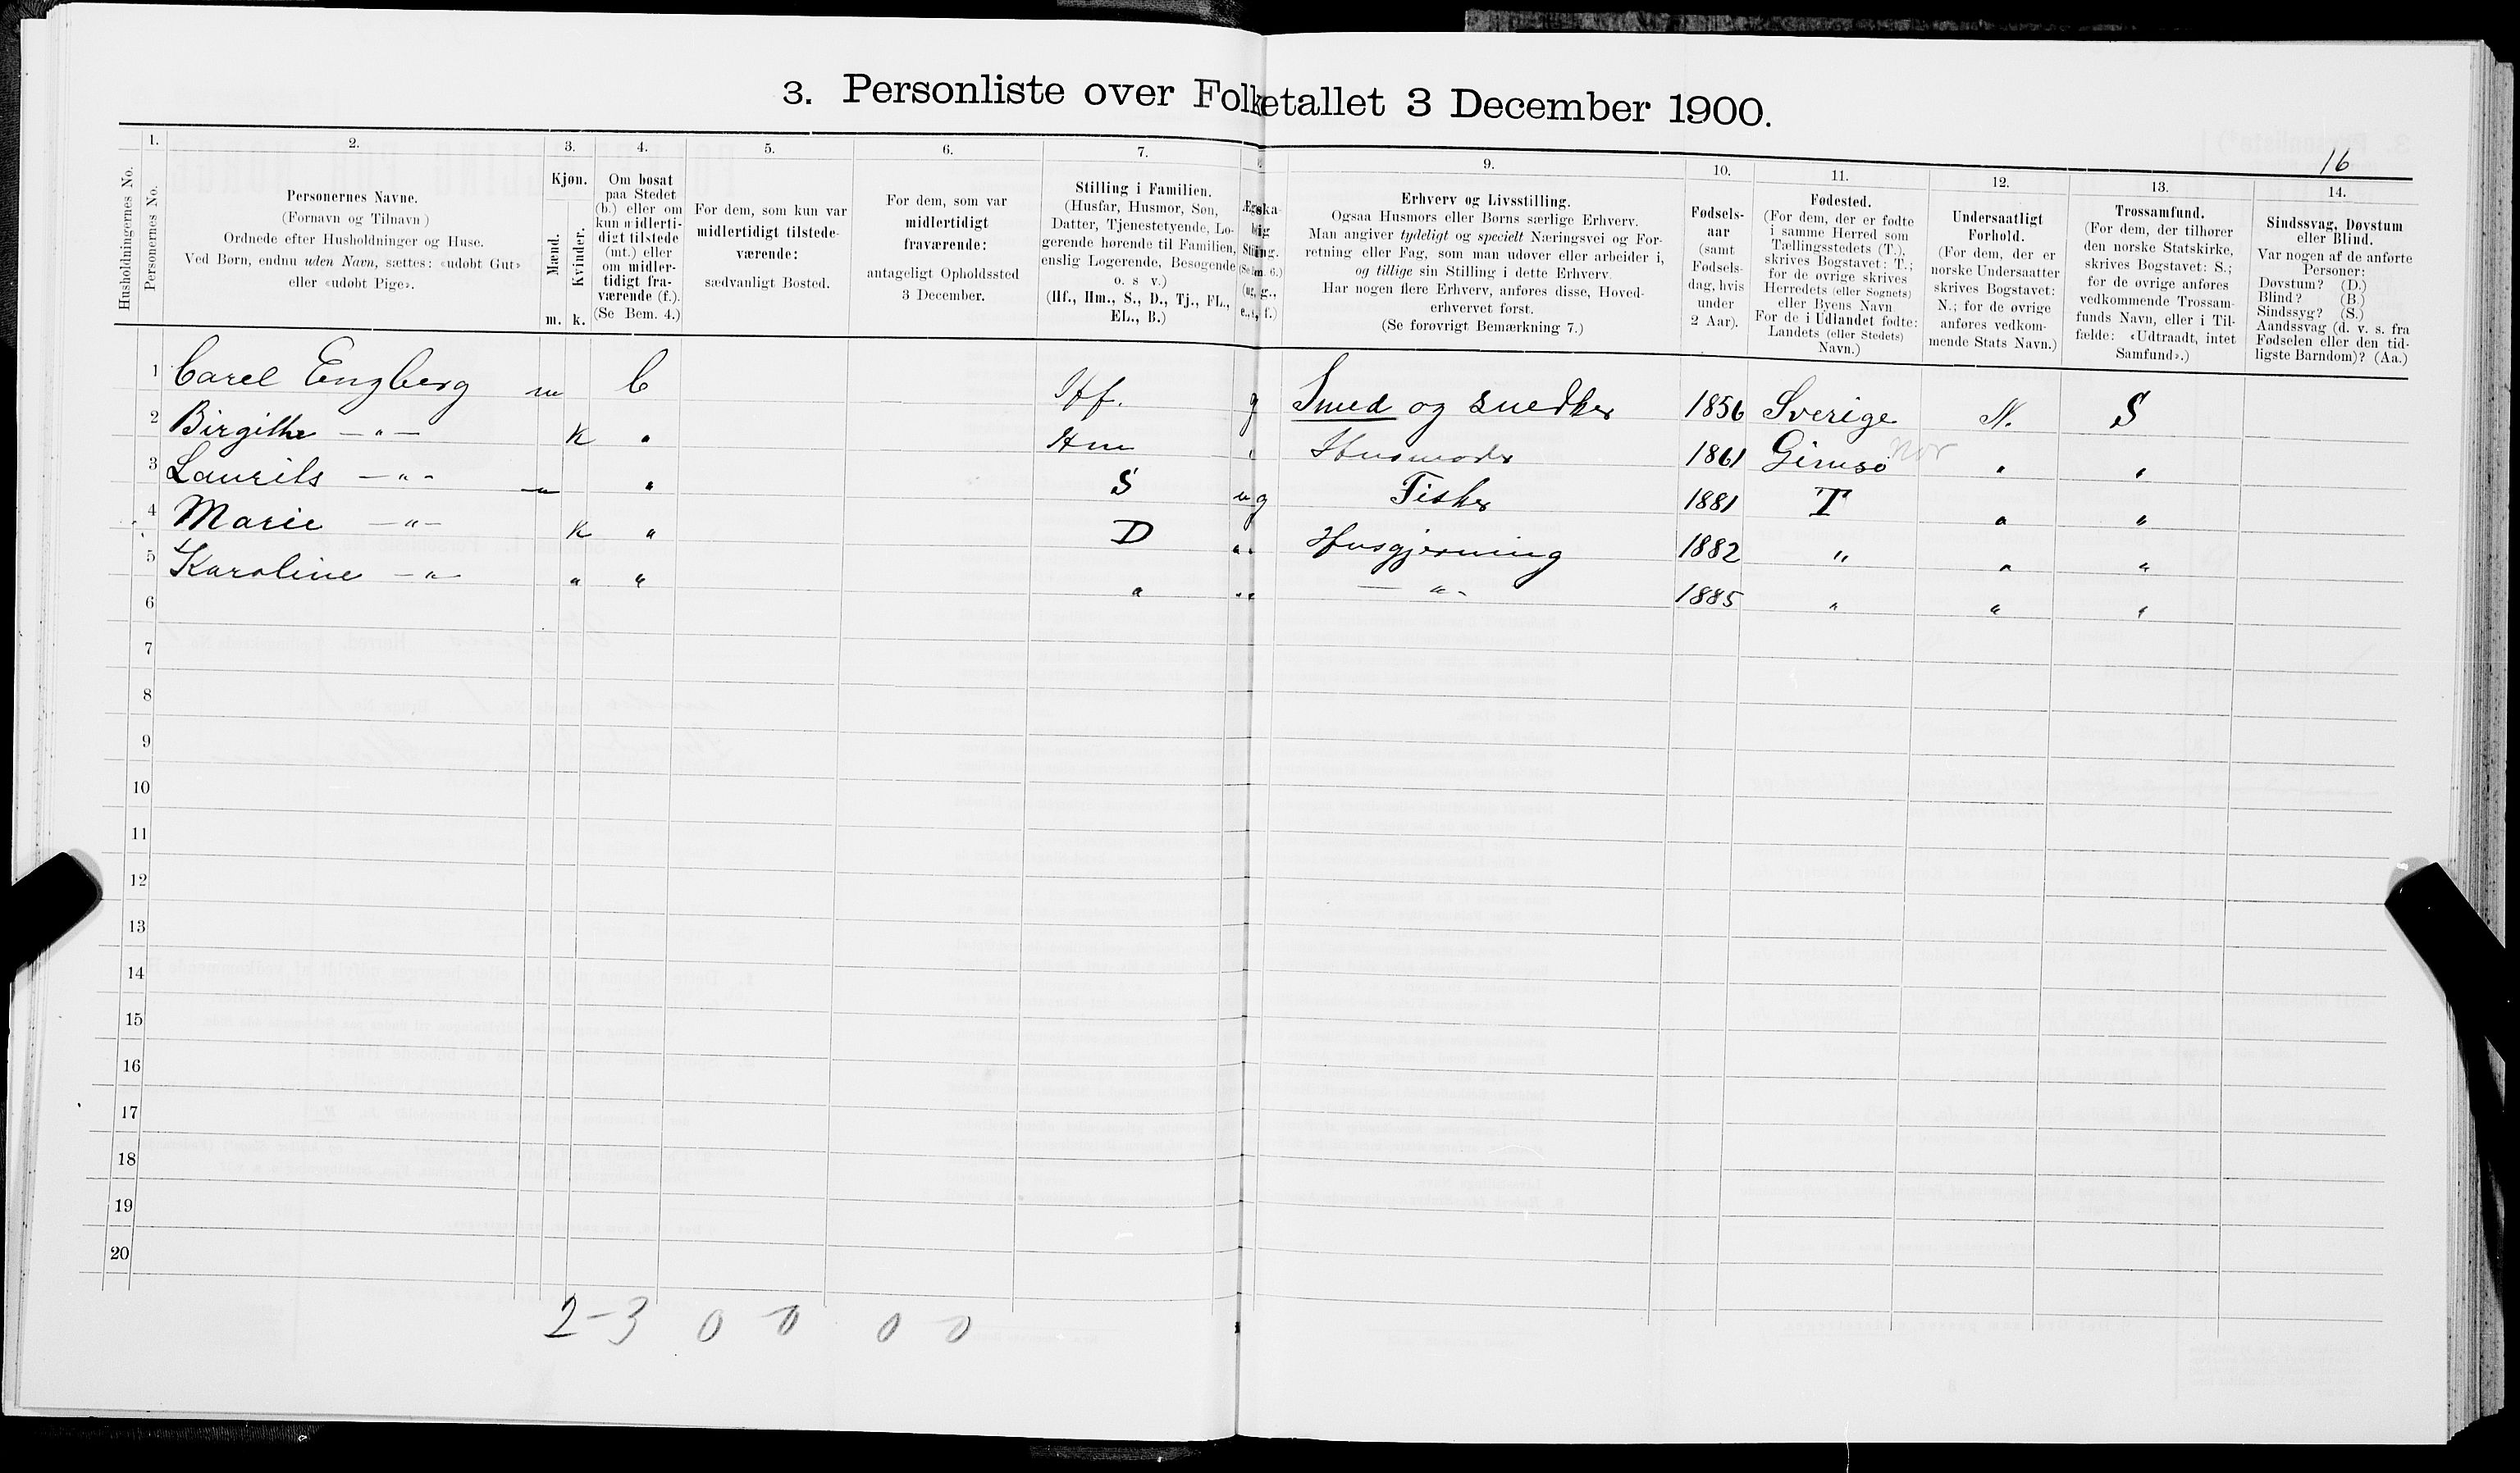 3. Personliste over Folketallet 3 December 1900.
16
1. 2. 3. 4. 5. 6. 7. 9. 10. 11. 12. 13. 14.
Husholdningernes No.
Personernes No.
Personernes Navne.
(Fornavn og Tilnavn)
Ordnede efter Husholdninger og Huse.
Ved Børn, endnu uden Navn, sættes: «udøbt Gut»
eller «udøbt Pige».
Kjøn.
Mænd.
Kvinder.
m. k.
Om bosat
paa Stedet
(b.) eller om
kun midlerti-
digt tilstede
(mt.) eller
om midler-
tidigt fra-
værende (f.).
(Se Bem. 4.)
For dem, som kun var
midlertidigt tilstede-
værende:
sædvanligt Bosted.
For dem, som var
midlertidigt
fraværende:
antageligt Opholdssted
3 December.
Stilling i Familien.
(Husfar, Husmor, Søn,
Datter, Tjenestetyende, Lo-
gerende hørende til Familien,
enslig Logerende, Besøgende
o. s v.)
(Hf., Hm., S., D., Tj., FL.,
EL., B.)
Erhverv og Livsstilling.
Ogsaa Husmors eller Børns særlige Erhverv.
Man angiver tydeligt og specielt Næringsvei og For-
retning eller Fag, som man udover eller arbeider i,
og tillige sin Stilling i dette Erhverv.
Har nogen flere Erhverv, anføres disse, Hoved-
erhvervet først.
(Se forøvrigt Bemærkning 7.)
Fødsels-
aar
(samt
Fødsels-
dag, hvis
under
2 Aar).
Fødested.
(For dem, der er fødte
i samme Herred som
Tællingsstedets (T.),
skrives Bogstavet: T.;
for de øvrige skrives
Herredets (eller Sognets)
eller Byens Navn
For de i Udlandet fødte:
Landets (eller Stedets)
Navn.)
Undersaatligt
Forhold.
(For dem, der er
norske Undersaatter
skrives Bogstavet:
N.; for de øvrige
anføres vedkom-
mende Stats Navn.)
Trossamfund.
(For dem, der tilhører
den norske Statskirke,
skrives Bogstavet: S.;
for de øvrige anføres
vedkommende Trossam-
funds Navn, eller i Til-
fælde: «Udtraadt, intet
Samfund».)
Sindssvag, Døvstum
eller Blind.
Var nogen af de anførte
Personer:
Døvstum? (D.)
Blind? (B.)
Sindssyg? (S.)
Aandssvag (d. v. s. fra
Fødselen eller den tid-
ligste Barndom)? (Aa.)
1 Carel Engberg m b Hf. g Smed og snedker 1856 Sverige N. S
2 Birgithe —"— k " Hm " Husmoder 1861 Gimsø Nor " "
3 Laurits —"- m " S ug Fisker 1881 T " "
4 Marie —"— k " D " Husgjerning 1882 " " "
5 Karoline —"— " " " " —"- 1885 " " "
6
7
8
9
10
11
12
13
14
15
16
17
18
19
20
2-3 0 0 0 0